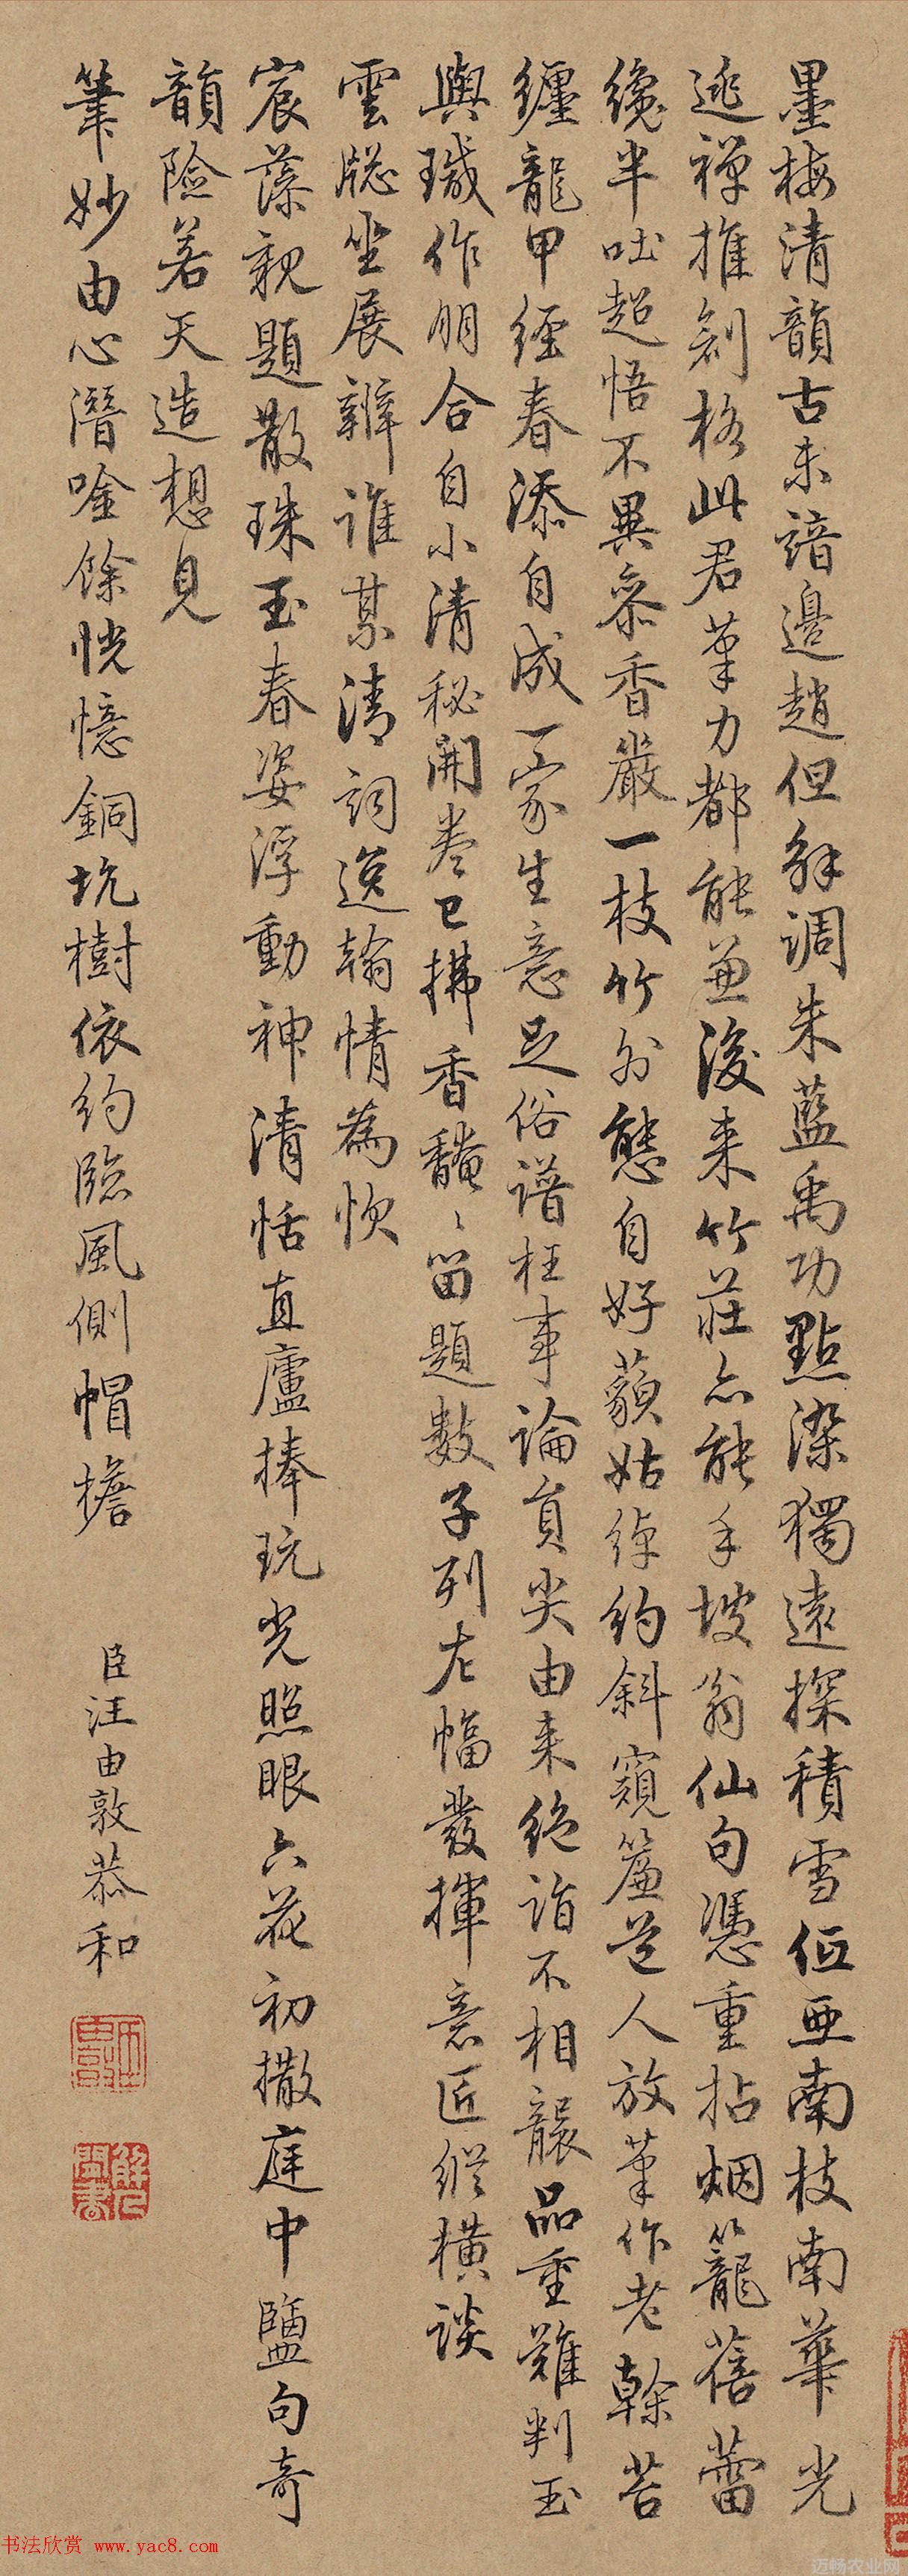 墨梅清韻古未諳邊趙但解調朱藍禹功點染獨遠探積雪伍亞南枝南華光
逃禪推創格此君筆力都能兼後來竹莊亦能手坡翁仙句憑重拈烟籠蓓蕾
纔半吐超悟不異參香嚴一枝竹外態自好藐姑綽約斜窺簾道人放筆作老榦苔
纏龍甲經春添自成一家生意足俗譜枉事論員尖由來絶詣不相襲品重難判玉
與瑊作朋合自小清秘開卷已拂香馣馣留題數子列左幅發揮意匠縱橫談
雲牎坐展辨誰某清詞逸翰情為忺
宸藻親題散珠玉春姿浮動神清恬直廬捧玩光照眼六花初撒庭中鹽句奇
韻險若天造想見
筆妙由心潛唫餘恍憶銅坑樹依約臨風側帽檐
臣汪由敦恭和
书法欣赏 www.yac8.com
迈畅农业网